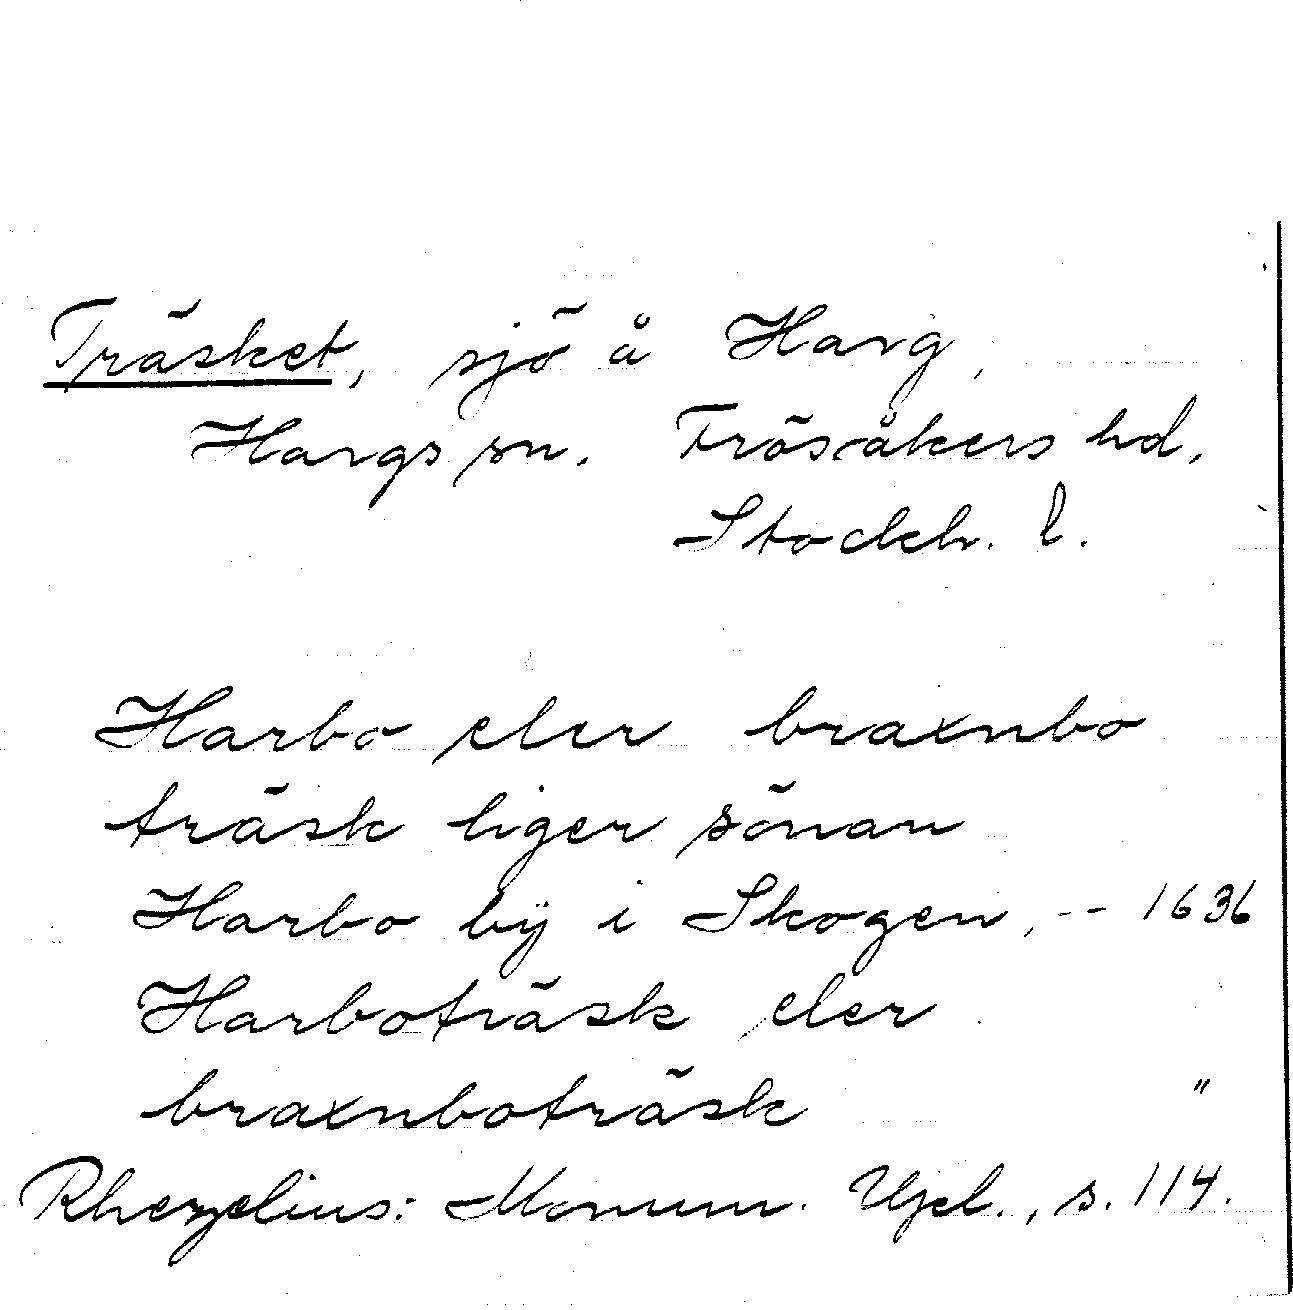 Träsket, sjö å Harg,
Hargs sn. Frösåkers hd,
Stockh. l.
Harbo eler braxnbo
träsk liger sönan
Harbo bÿ i Skogen, -- 1636
Harboträsk eler
braxnboträsk "
Rhezelius: Monum. Upl., s. 114.